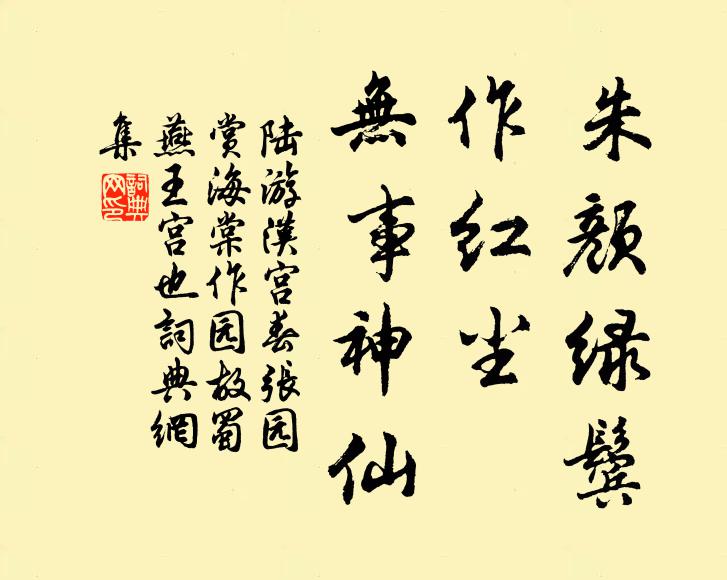 朱颜绿鬓
作红尘
無事神仙
陆游漢宫春張园
赏海棠作园故蜀
燕王宫也詞典網
集
詞典网印